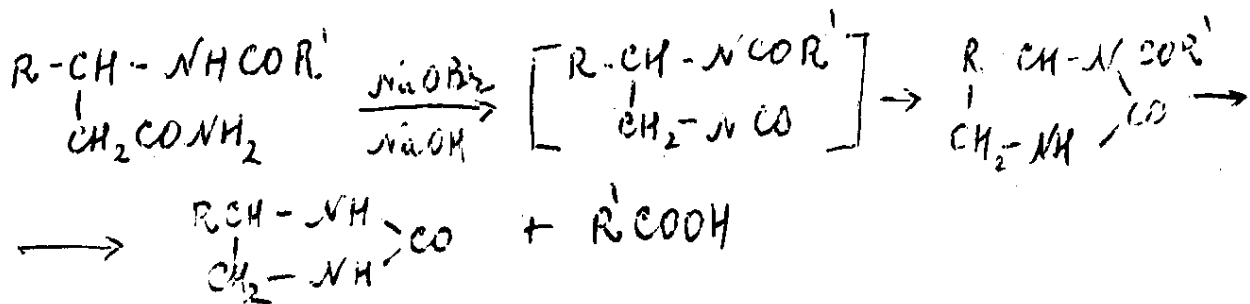 R-CH-NHCOR'
CH₂CONH₂
NaOBr
NaOH
[R-CH-NCOR'
CH₂-NCO]
→
R CH-N COR'
CH₂-NH CO
→
→
RCH-NH
CH₂-NH
CO + R'COOH